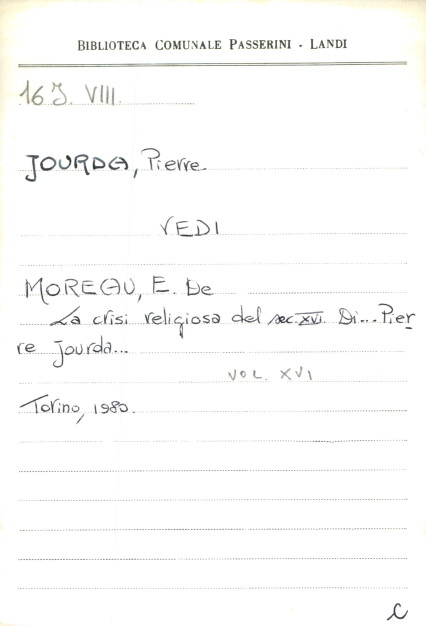 BIBLIOTECA COMUNALE PASSERINI - LANDI
16 J. VIII.
JOURDA, Pierre.
VEDI
MOREAU, E. De
La crisi religiosa del sec. XVI. Di... Pier
re Jourda...
VOL. XVI
Torino, 1980.
C